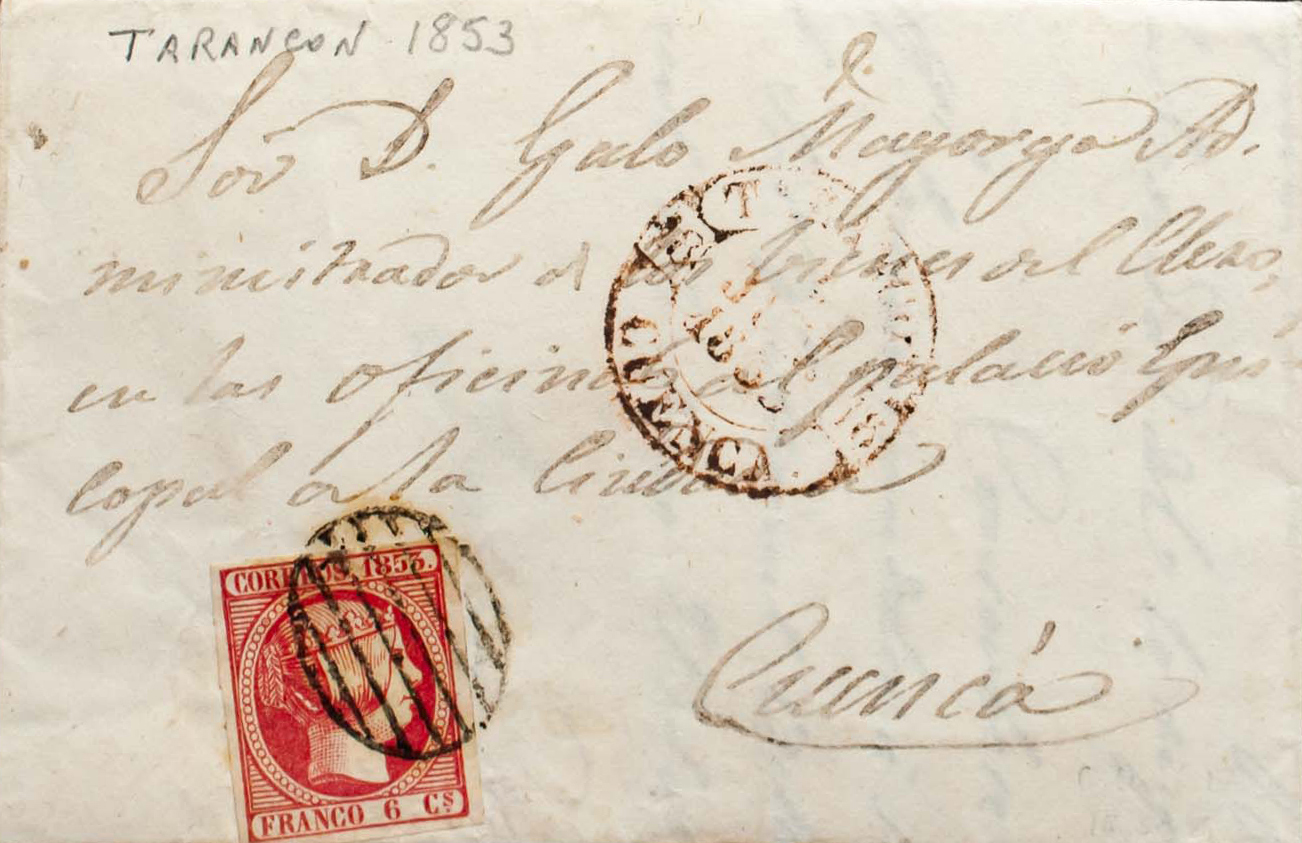 TARANCON 1853
Sor D. Galo Mayorga Ad.
ministrador de los bienes del Clero,
en las oficinas del palacio Epis-
copal de la Ciudad de
Cuenca
CUENCA
CORREOS. 1853.
FRANCO 6 Cs